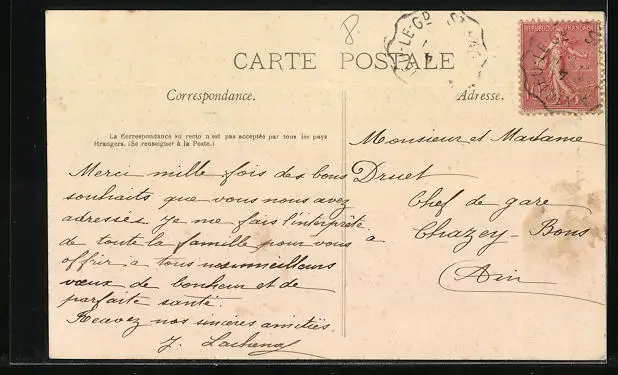 8
CARTE POSTALE
REPUBLIQUE FRANÇAISE
10
Correspondance.
La Correspondance au recto n'est pas acceptée par tous les pays
étrangers. (Se renseigner à la Poste.)
Merci mille fois des bons
souhaits que vous nous avez
adressés. Je me fais l'interprète
de toute la famille pour vous
offrir à tous nos meilleurs
vœux de bonheur et de
parfaite santé.
Recevez nos sincères amitiés
J.
Adresse.
Monsieur et Madame
Druet
Chef de gare
à Chazey-Bons
(Ain)